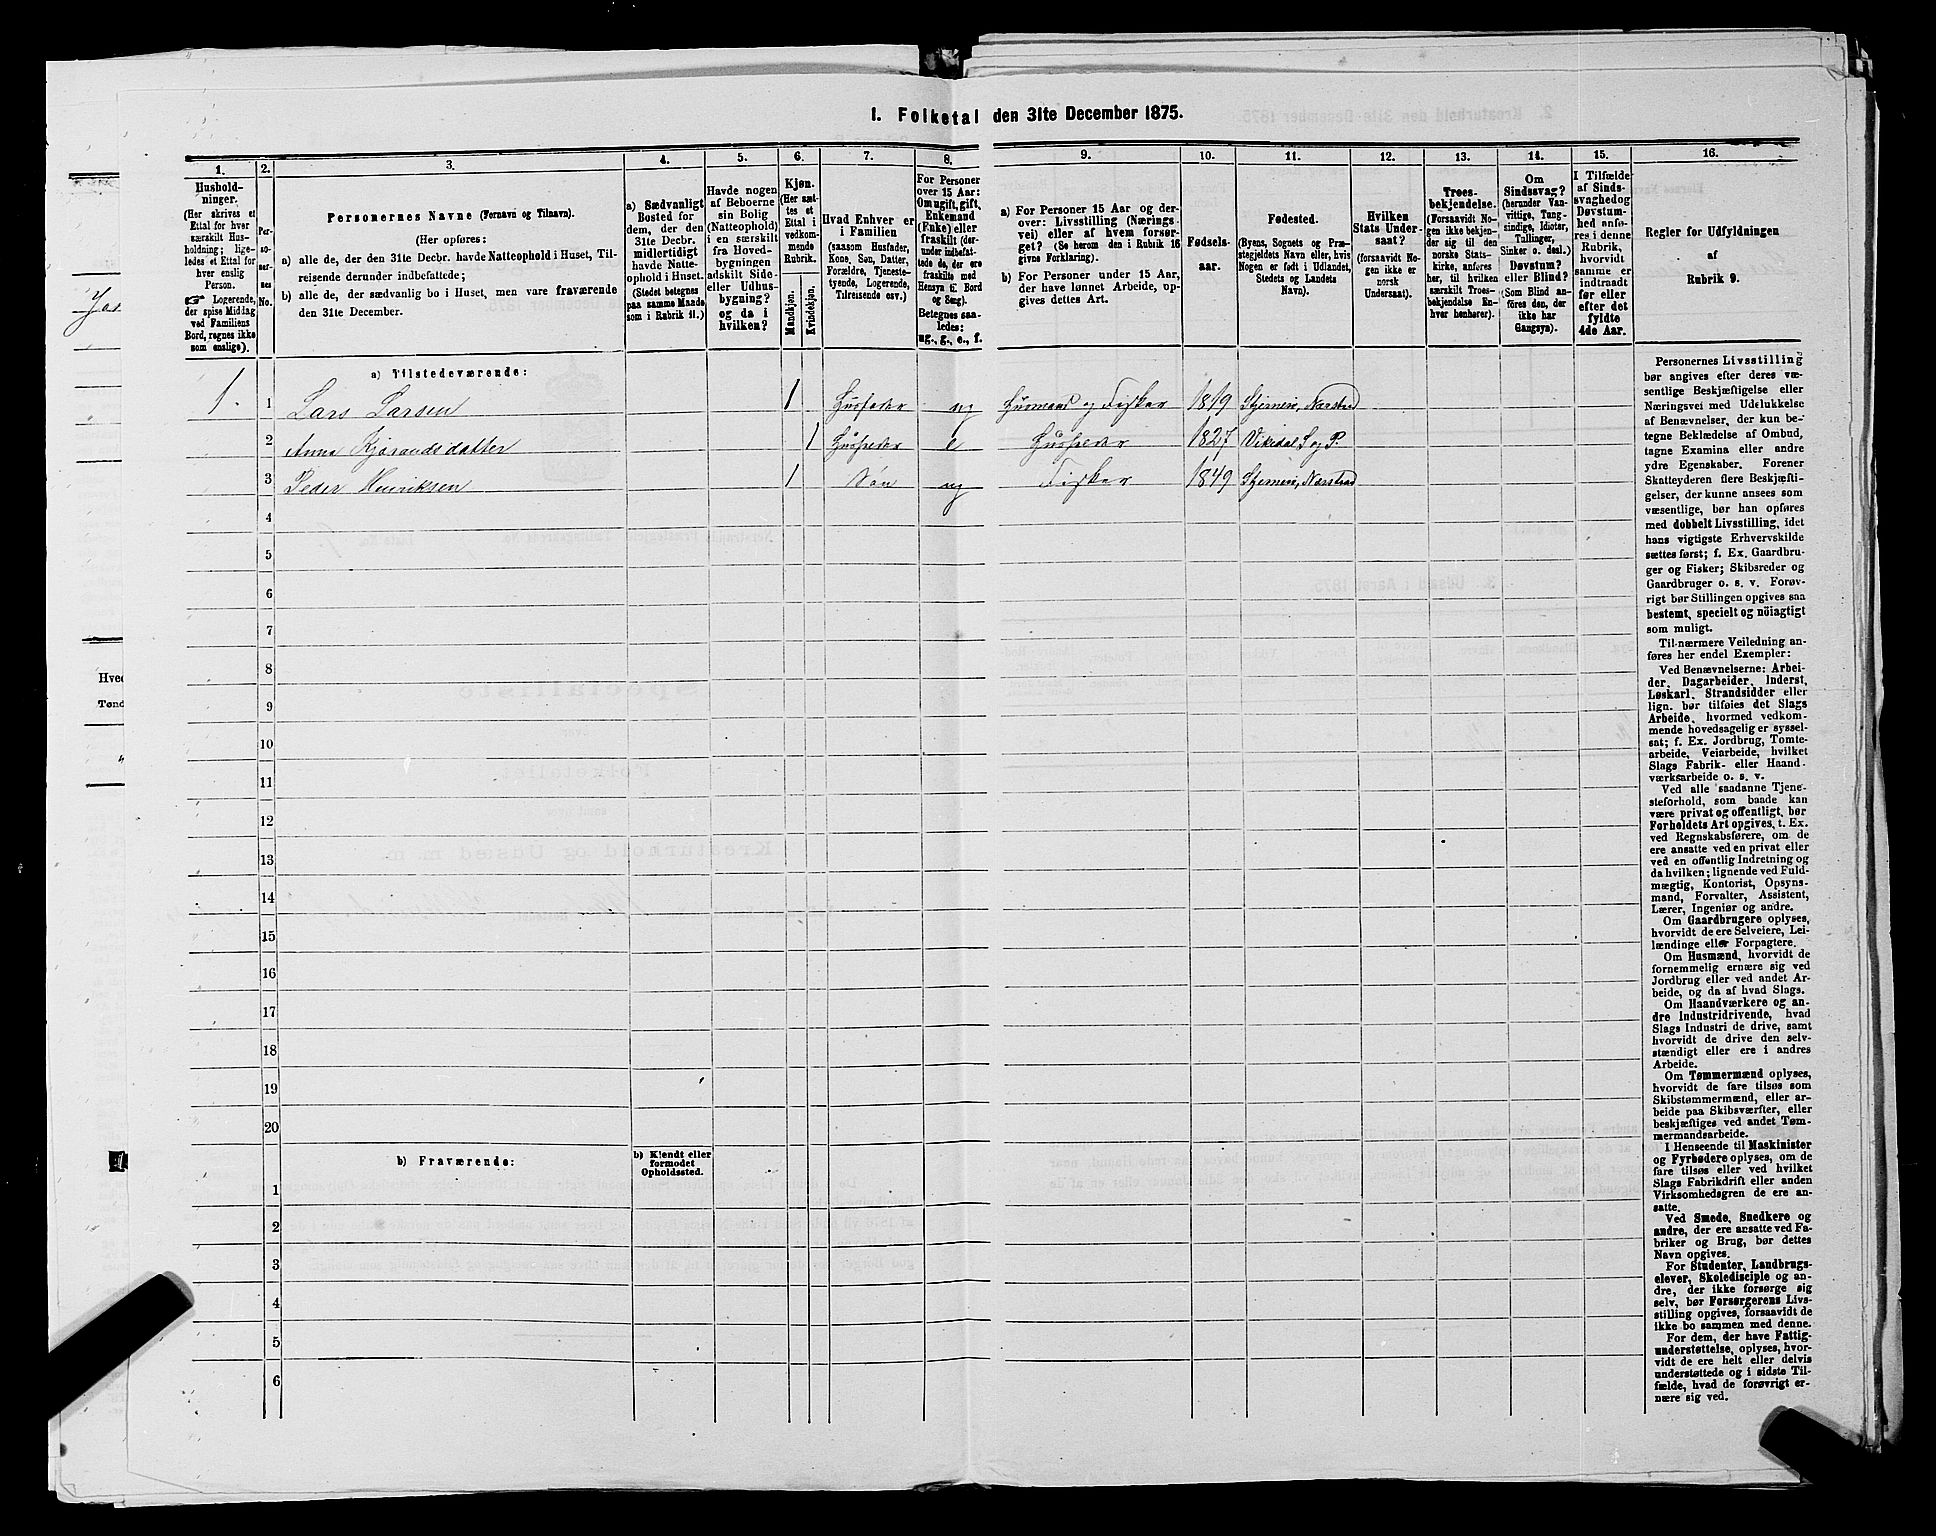 I. Folketal den 31te December 1875.
1. 2. 3. 4. 5. 6. 7. 8. 9. 10. 11. 12. 13. 14. 15. 16.
Hushold-
ninger.
(Her skrives et
Ettal for hver
særskilt Hus-
holdning; lige-
ledes et Ettal for
hver enslig
Person.
☞ Logerende,
der spise Middag
ved Familiens
Bord, regnes ikke
som enslige).
Per-
so-
ner-
nes
No.
Personernes Navne (Fornavn og Tilnavn).
(Her opføres:
a) alle de, der den 31te Decbr. havde Natteophold i Huset, Til-
reisende derunder indbefattede;
b) alle de, der sædvanlig bo i Huset, men vare fraværende
den 31te December.
a) Sædvanligt
Bosted for
dem, der den
31te Decbr.
midlertidigt
havde Natte-
ophold i Huset
(Stedet betegnes
paa samme Maade
som i Rubrik 11.)
Havde nogen
af Beboerne
sin Bolig
(Natteophold)
i en særskilt
fra Hoved-
bygningen
adskilt Side-
eller Udhus-
bygning?
og da i
hvilken?
Kjøn.
(Her sæt-
tes et
Ettal i
vedkom-
mende
Rubrik.
Mandkjøn.
Kvindekjøn.
Hvad Enhver er
i Familien
(saasom Husfader,
Kone, Søn, Datter,
Forældre, Tjeneste-
tyende, Logerende,
Tilreisende osv.)
For Personer
over 15 Aar:
Om ugift, gift,
Enkemand
(Enke) eller
fraskilt (der-
under indbefat-
tede de, der ere
fraskilte med
Hensyn til Bord
og Seng).
Betegnes saa-
ledes:
ug., g., e., f.
a) For Personer 15 Aar og der-
over: Livsstilling (Nærings
vei) eller af hvem forsør-
get? (Se herom den i Rubrik 16
givne Forklaring).
b) For Personer under 15 Aar,
der have lønnet Arbeide, op-
gives dettes Art.
Fødsels-
aar.
Fødested.
(Byens, Sognets og Præ-
stegjeldets Navn eller, hvis
Nogen er født i Udlandet,
Stedets og Landets
Navn).
Hvilken
Stats Under-
saat?
(forsaavidt No-
gen ikke er
norsk
Undersaat).
Troes-
bekjendelse.
(Forsaavidt No-
gen ikke bekjen-
der sig til den
norske Stats-
kirke, anføres
her, til hvilken
særskilt Troes-
bekjendelse En-
hver henhører).
Om
Sindssvag?
(herunder Van-
vittige, Tung-
sindige, Idioter,
Tullinger,
Sinker o. desl.)
eller Blind?
Døvstum?
(Som Blind an-
føres den, der
ikke har
Gangsyn).
I Tilfælde
af Sinds-
svaghed og
Døvstum-
hed anfø-
res i denne
Rubrik,
hvorvidt
samme er
indtraadt
før eller
efter det
fyldte
4de Aar.
Regler for Udfyldningen
af
Rubrik 9.
a) Tilstedeværende:
1. 1 Lars Larsen 1 Husfader ug Husmand og Fisker 1819 Stjernerø, Nærstrand
2 Anna Kjørandsdatter 1 e 1827 Vikedal S og P.
3 Peder Henriksen 1 Søn ug Fisker 1849 Stjernerø, Nærstrand
4
5
6
7
8
9
10
11
12
13
14
15
16
17
18
19
20
b) Fraværende:
b) Kjendt eller
formodet
Opholdssted.
1
2
3
4
5
6
Personernes Livsstilling
bør angives efter deres væ-
sentlige Beskjæftigelse eller
Næringsvei med Udelukkelse
af Benævnelser, der kun be-
tegne Beklædelse af Ombud,
tagne Examina eller andre
ydre Egenskaber. Forener
Skatteyderen flere Beskjæfti-
gelser, der kunne ansees som
væsentlige, bør han opføres
med dobbelt Livsstilling, idet
hans vigtigste Erhvervskilde
sættes først; f. Ex. Gaardbru-
ger og Fisker; Skibsreder og
Gaardbruger o. s. v. Forøv-
rigt bør Stillingen opgives saa
bestemt, specielt og nöiagtigt
som muligt.
Til nærmere Veiledning an-
føres her endel Exempler:
Ved Benævnelserne: Arbei-
der, Dagarbeider, Inderst,
Løskarl, Strandsidder eller
lign. bør tilføies det Slags
Arbeide, hvormed vedkom-
mende hovedsagelig er syssel-
sat; f. Ex. Jordbrug, Tomte-
arbeide, Veiarbeide, hvilket
Slags Fabrik- eller Haand-
værksarbeide o. s. v.
Ved alle saadanne Tjene-
steforhold, som baade kan
være privat og offentligt, bør
Forholdets Art opgives, t. Ex.
ved Regnskabsførere, om de
ere ansatte ved en privat eller
ved en offentlig Indretning og
da hvilken; lignende ved Fuld-
mægtig, Kontorist, Opsyns-
mand, Forvalter, Assistent,
Lærer, Ingeniør og andre.
Om Gaardbrugere oplyses,
hvorvidt de ere Selveiere, Lei-
lændinge eller Forpagtere.
Om Husmænd, hvorvidt de
fornemmelig ernære sig ved
Jordbrug eller ved andet Ar-
beide, og da af hvad Slags.
Om Haandværkere og an-
dre Industridrivende, hvad
Slags Industri de drive, samt
hvorvidt de drive den selv-
stændigt eller ere i andres
Arbeide.
Om Tømmermænd oplyses,
hvorvidt de fare tilsøs som
Skibstømmermænd, eller ar-
beide paa Skibsværfter, eller
beskjæftiges ved andet Tøm-
mermandsarbeide.
I Henseende til Maskinister
og Fyrbødere oplyses, om de
fare tilsøs eller ved hvilket
Slags Fabrikdrift eller anden
Virksomhedsgren de ere an-
satte.
Ved Smede, Snedkere og
andre, der ere ansatte ved Fa-
briker og Brug, bør dettes
Navn opgives.
For Studenter, Landbrugs-
elever, Skoledisciple og an-
dre, der ikke forsørge sig
selv, bør Forsørgerens Livs-
stilling opgives, forsaavidt de
ikke bo sammen med denne.
For dem, der have Fattig-
understøttelse, oplyses, hvor-
vidt de ere helt eller delvis
understøttede og i sidste Til-
fælde, hvad de forøvrigt er-
nære sig ved.